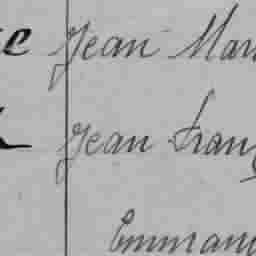 Jean Mar
Jean Franç
Emmanu